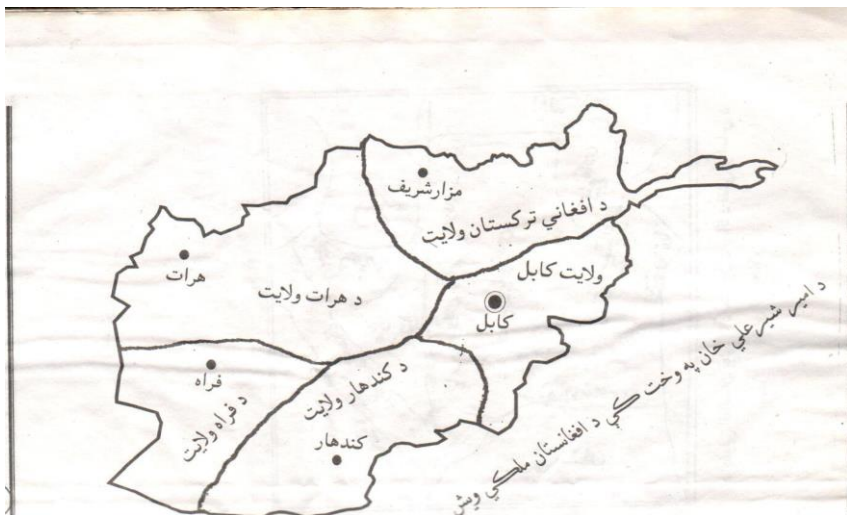 مزار شریف
د افغاني ترکستان ولایت
هرات
د هرات ولایت
ولایت کابل
کابل
فراه
د فراه ولایت
د کندهار ولایت
کندهار
د امیر شیر علي خان په وخت کي د افغانستان ملکي ویش